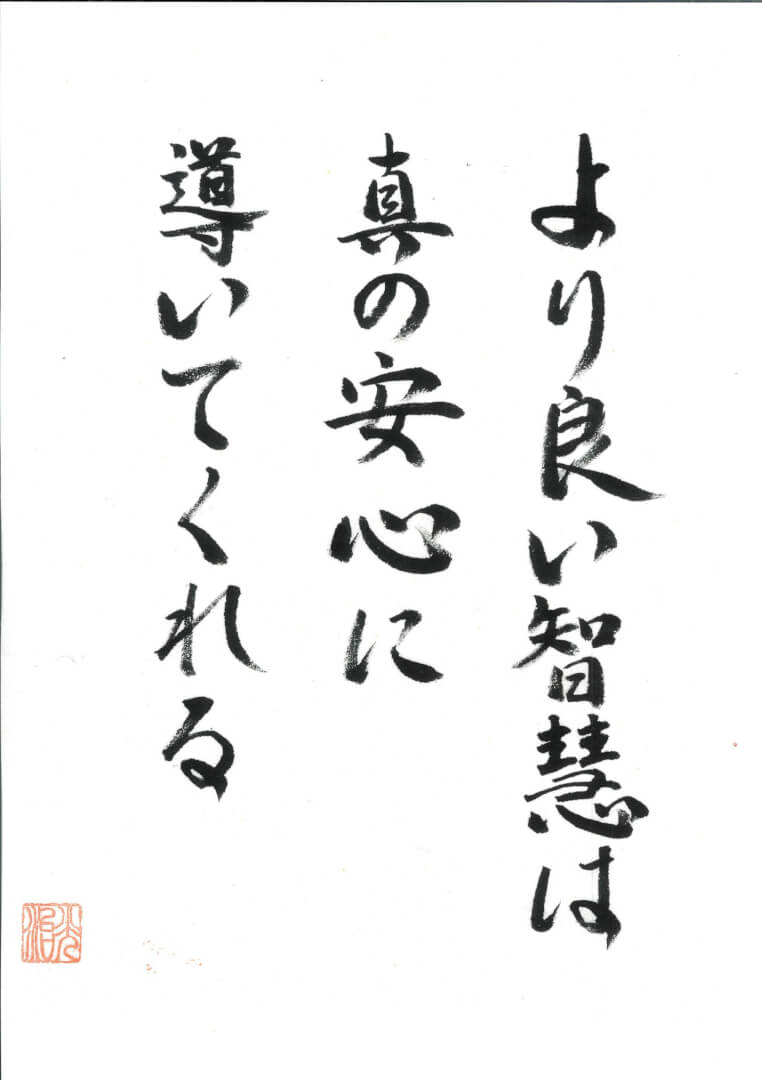 より良い智慧は
真の安心に
導いてくれる